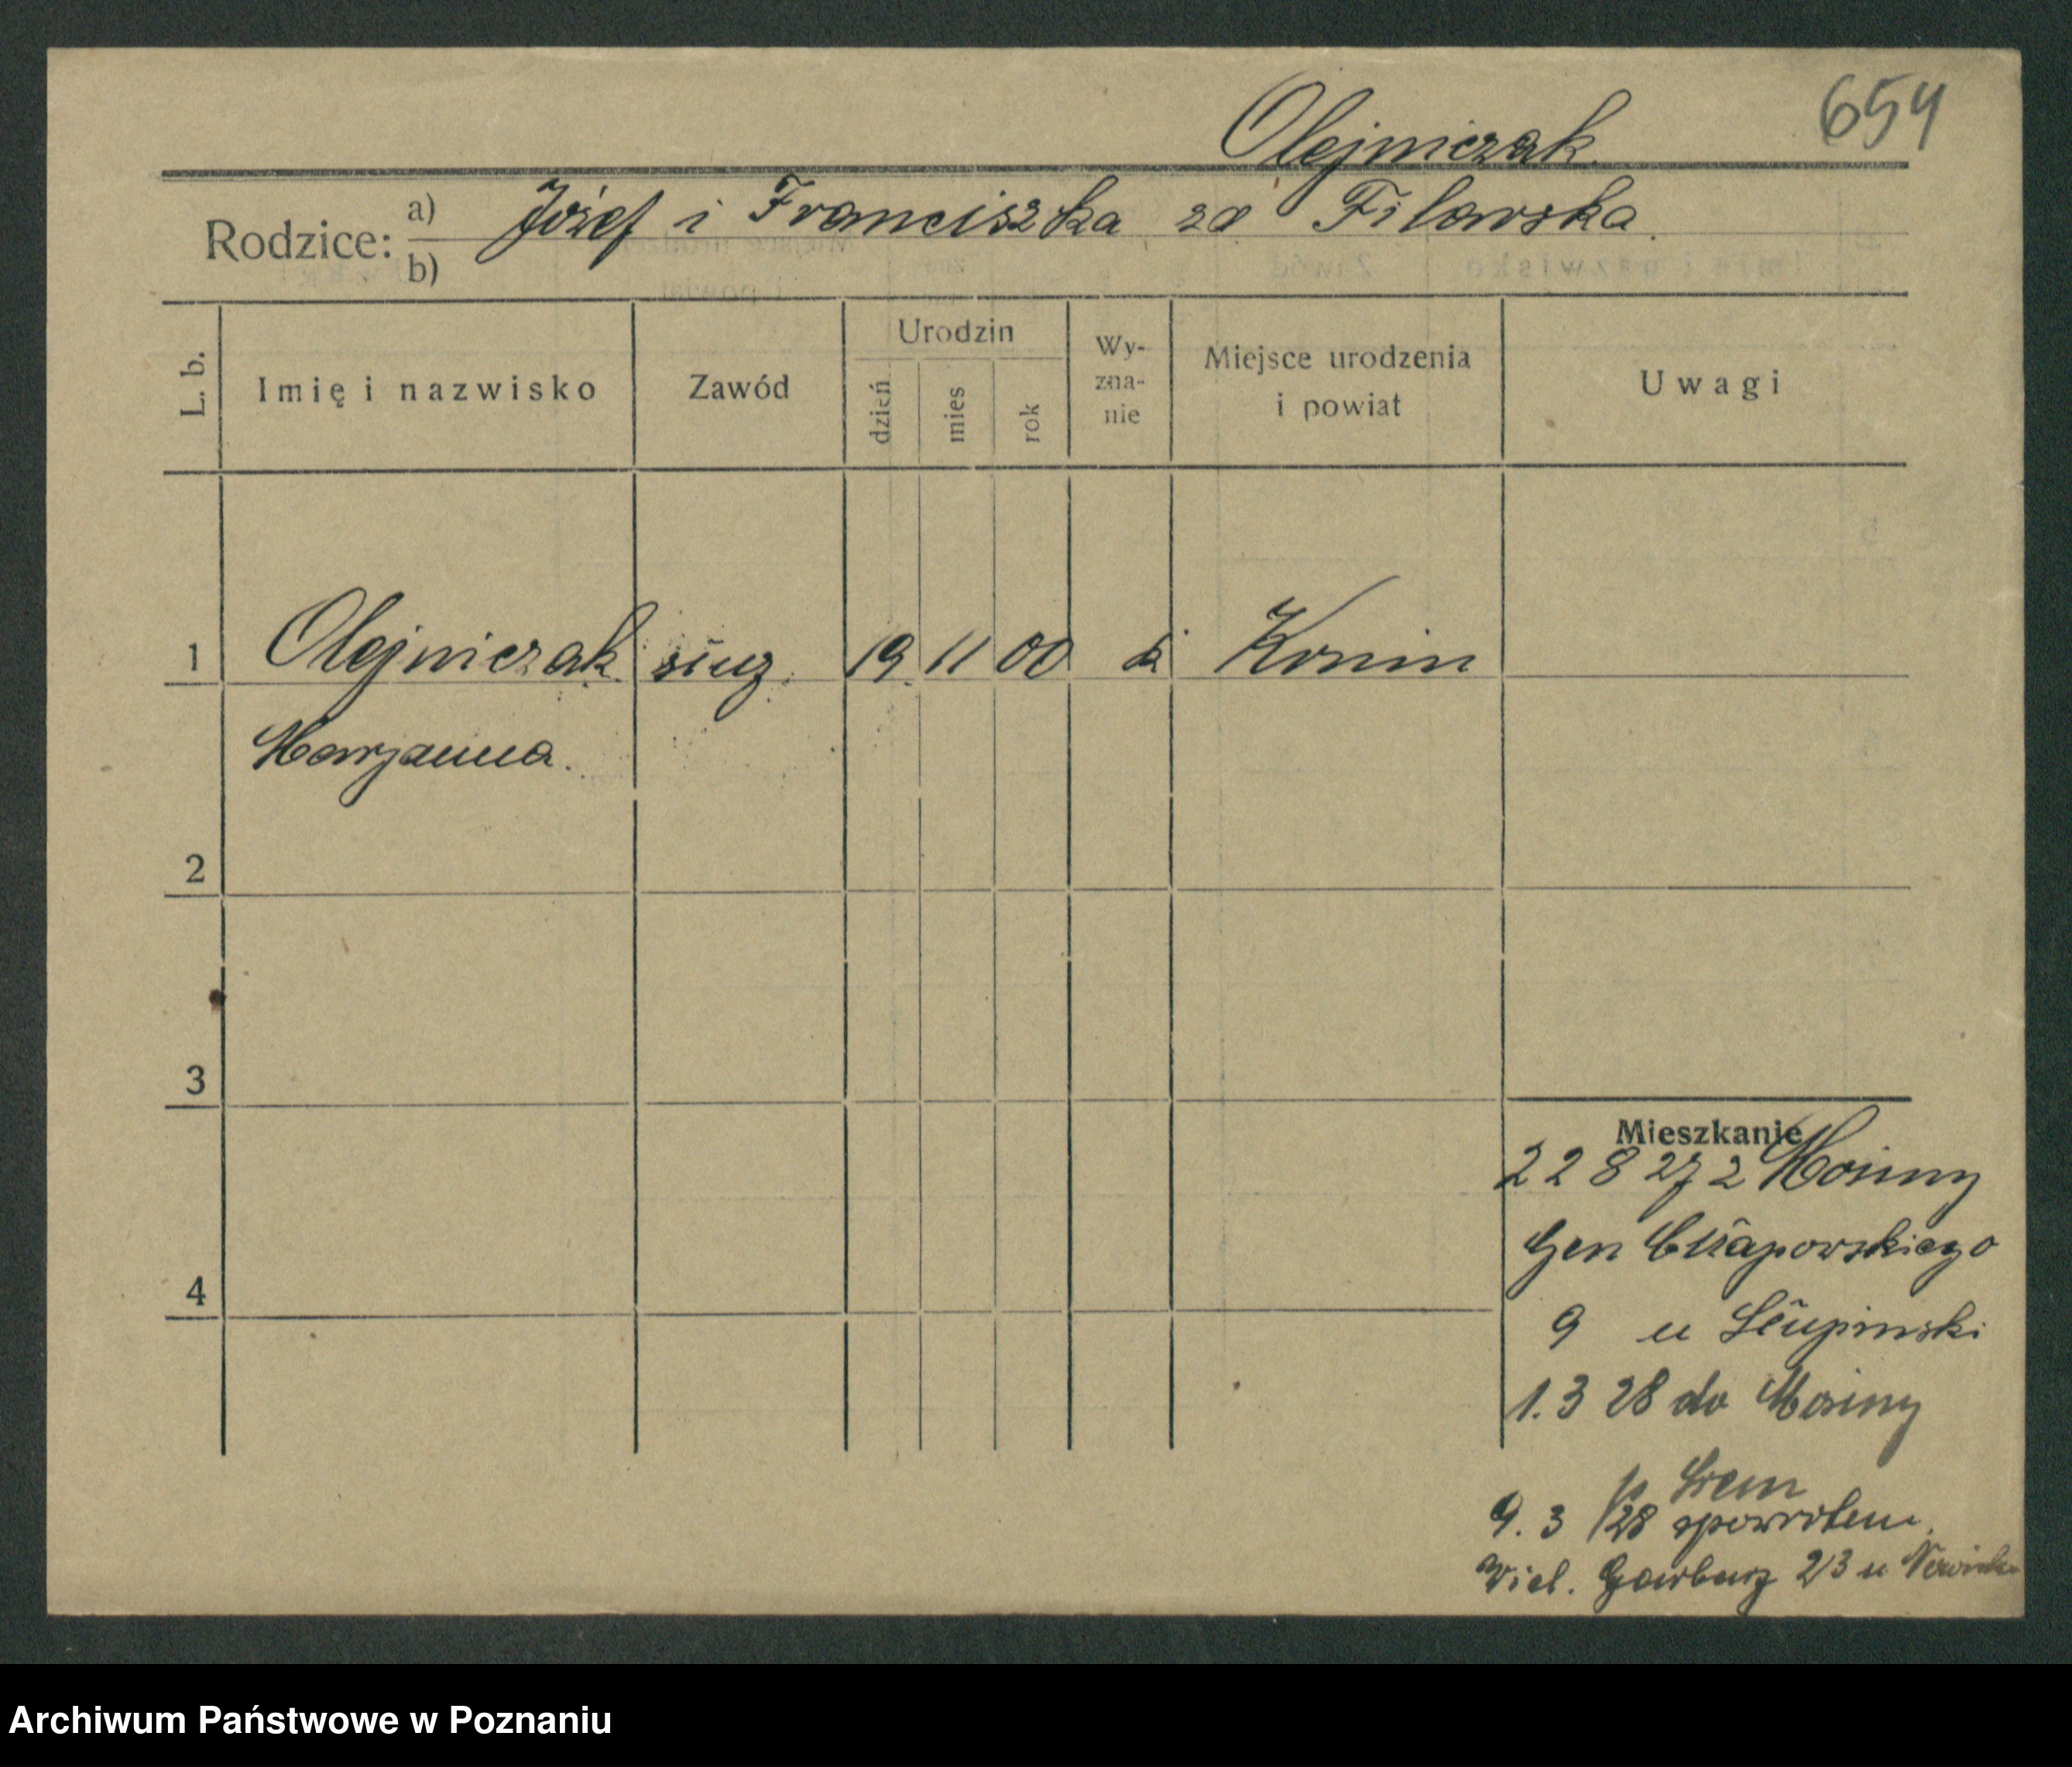 654
Olejniczak.
Rodzice: a) Józef i Franciszka zd Filarska.
b)
L. b.
Imię i nazwisko
Zawód
Urodzin
dzień
mies
rok
Wy-
zna-
nie
Miejsce urodzenia
i powiat
Uwagi
1 Olejniczak służ. 19. 11 00 k Konin
Marjanna.
2
3
4
Mieszkanie
22 8 27 z Mosiny
Gen Chłapowskiego
9 u Słupinski
1.3 28 do Mosiny
p Śrem
9. 3 28 spowrotem.
Wiel. Garbary 23 u
Archiwum Państwowe w Poznaniu